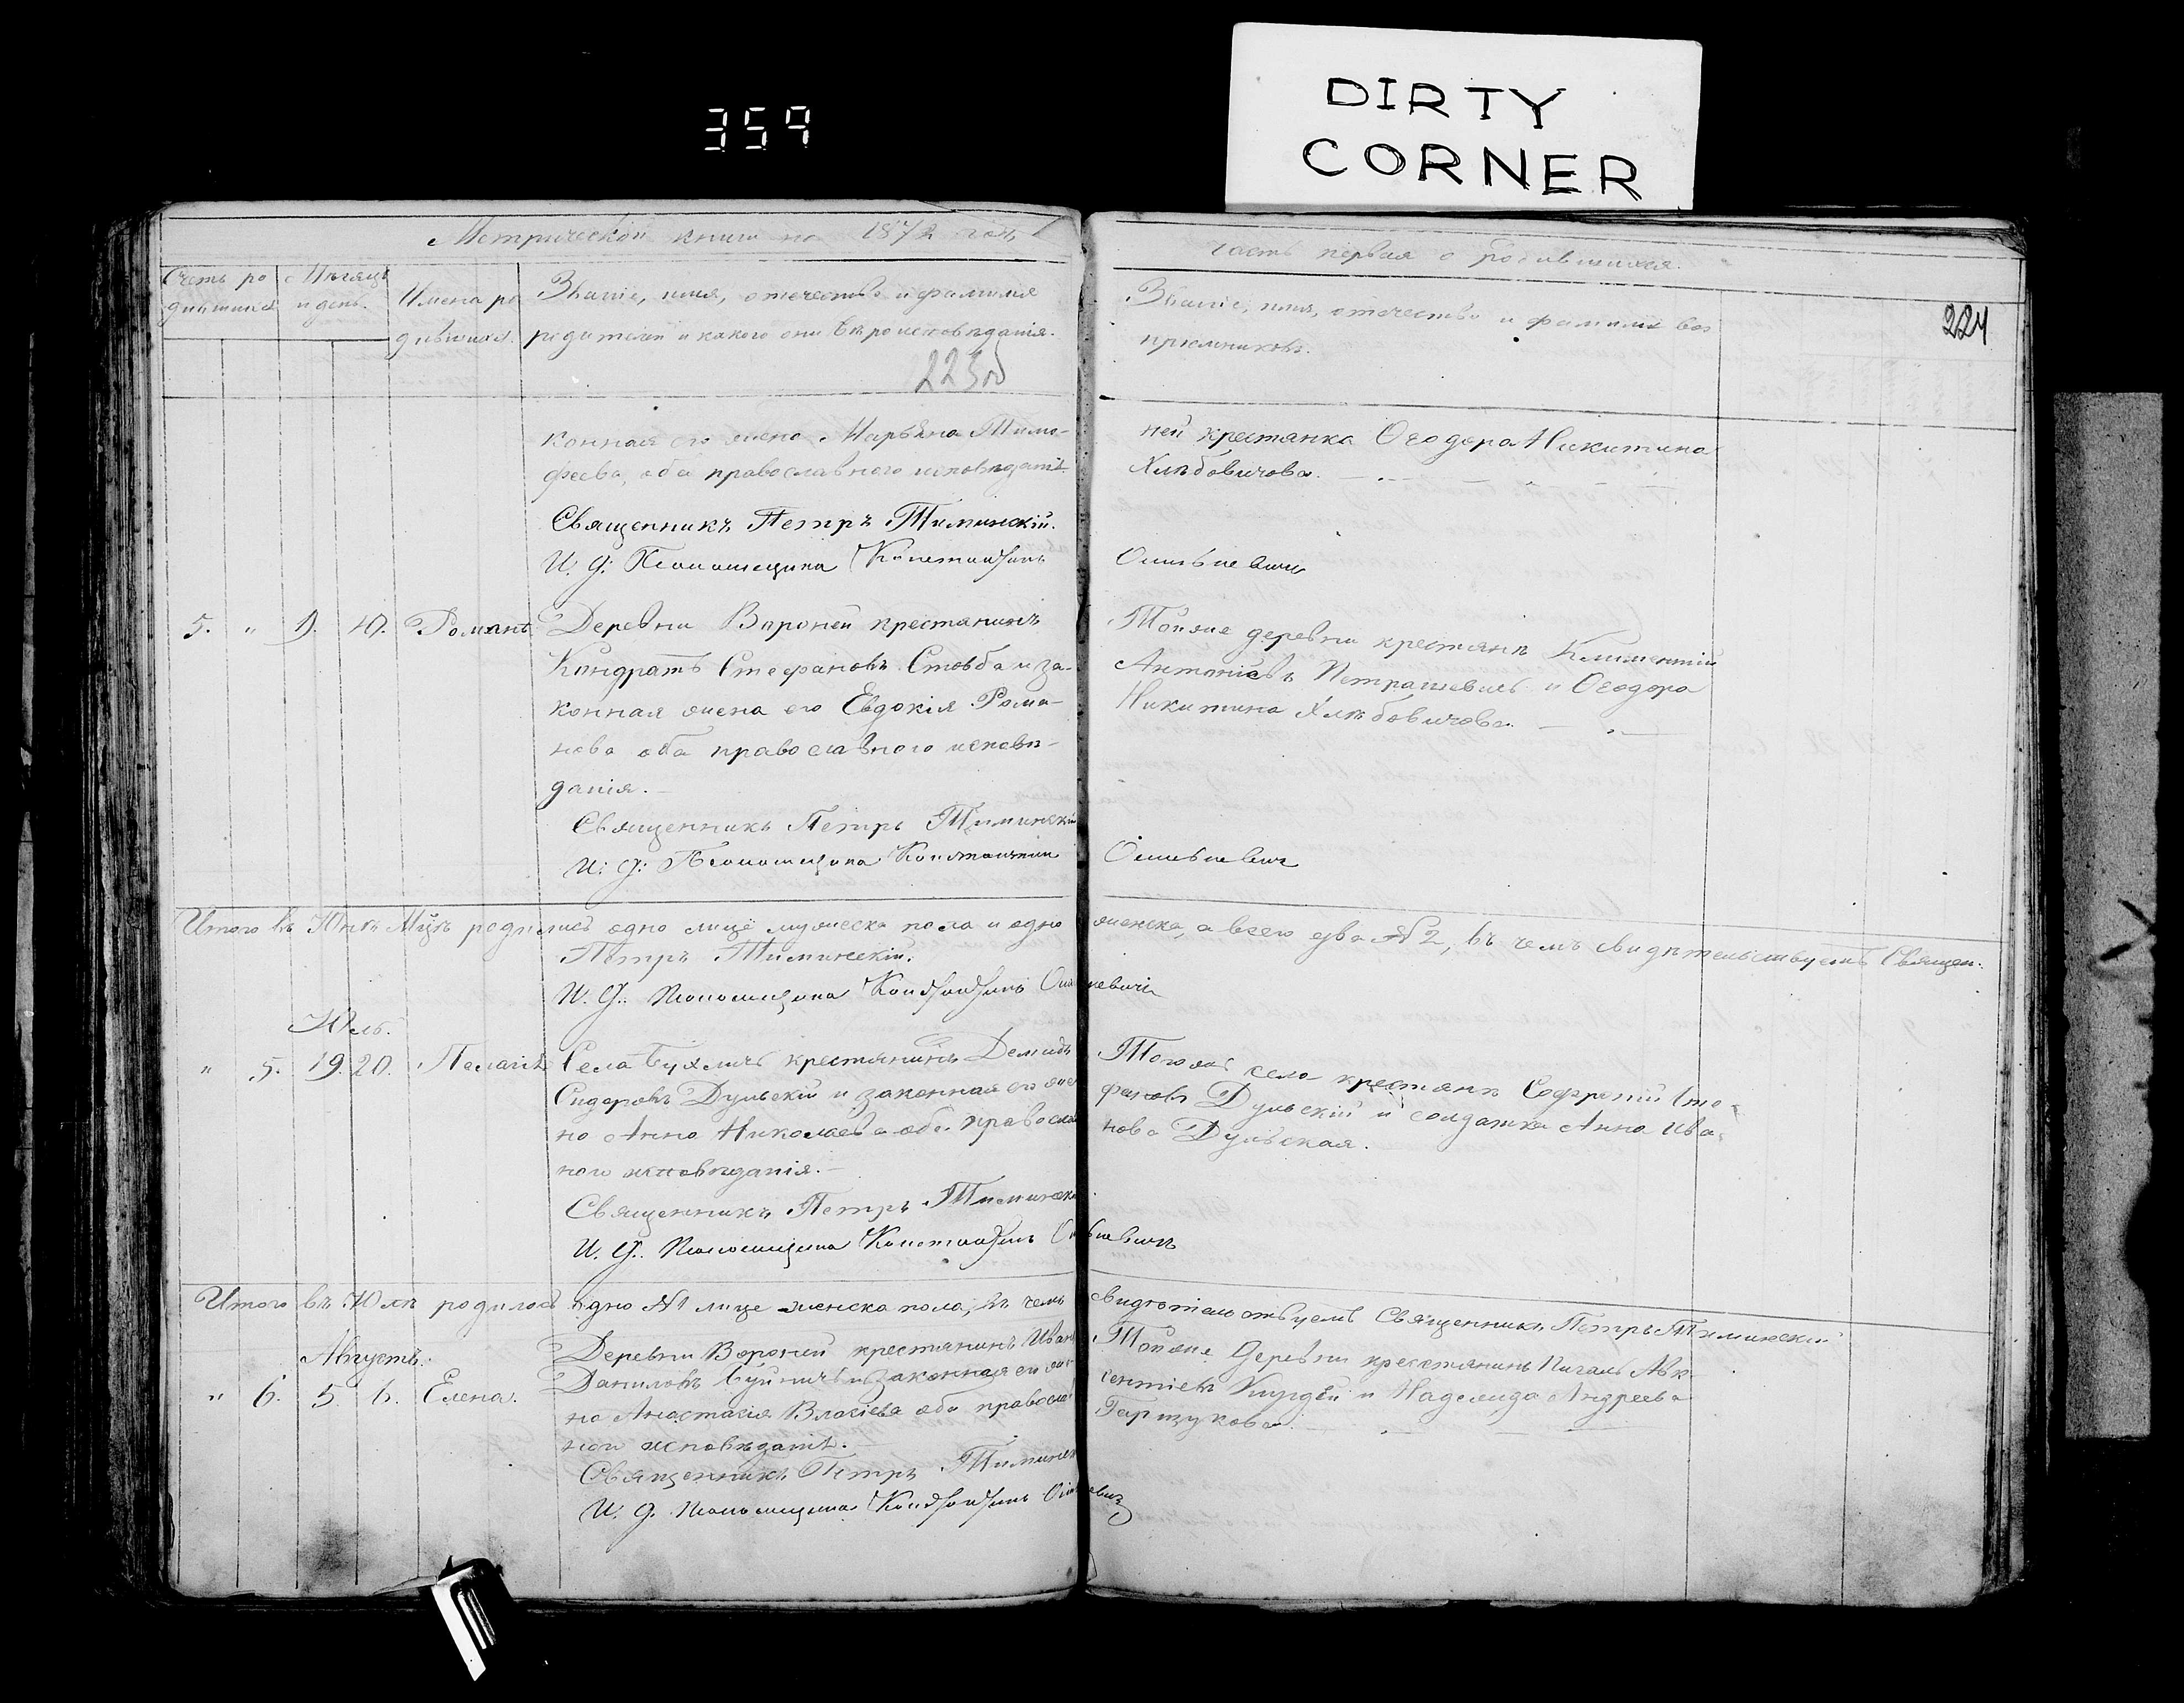 359
DIRTY
CORNER
Метрической книги на 1872 годъ
часть первая о родившихся.
Счетъ ро
дившихся
Мѣсяцъ
и день.
Имена ро
дившихся.
Званіе, имя, отечество и фамилія
родителей и какого они вѣроисповѣданія.
Званіе, имя, отечество и фамилія вос
пріемниковъ.
224
223
конная его жена Марьяна Тимо-
феева, оба православного исповѣданія
Священникъ Петръ Тиминскій.
И. д. Псаломщика Константинъ
ней крестянка Ѳеодора Никитина
Хлѣбовичова.
5. " 9. 10. Романъ
Деревни Вороней крестянинъ
Кондратъ Стефановъ Стовба и за-
конная жена его Евдокія Рома-
нова оба православного исповѣ-
данія.
Священникъ Петръ Тиминскій
И. д. Псаломщика Константинъ
Тойже деревни крестяне Климентій
Антоніевъ Петрашевичъ и Ѳеодора
Никитина Хлѣбовичова.
Итого въ Юнѣ М-цѣ родились одно лице мужеска пола и одно женска, а всего два № 2, въ чемъ свидѣтельствуемъ Священ.
Петръ Тиминскій.
И. д. Псаломщика Константинъ
Юль.
" 5. 19. 20. Пелагія
Села Бухличъ крестянинъ Демидъ
Сидоровъ Дульскій и законная его же
на Анна Николаева оба правосла
ного исповѣданія.
Священникъ Петръ Тиминскій
И. д. Псаломщика Константинъ
Того же села крестяне Софроній Сте-
фановъ Дульскій и солдатка Анна Ива-
нова Дульская.
Итого въ Юлѣ родилось одно № 1 лице женска пола, въ чемъ свидѣтельствуемъ Священникъ Петръ Тиминскій
Августъ.
" 6. 5. 6. Елена.
Деревни Вороней крестянинъ Иванъ
Даниловъ и законная его же
на Анастасія Власіева оба правосла
ного исповѣданія.
Священникъ Петръ Тиминск
И. д. Псаломщика Константинъ
Тойже Деревни крестянинъ Ав-
сентіевъ и Надежда Андреева
Гарщукова.